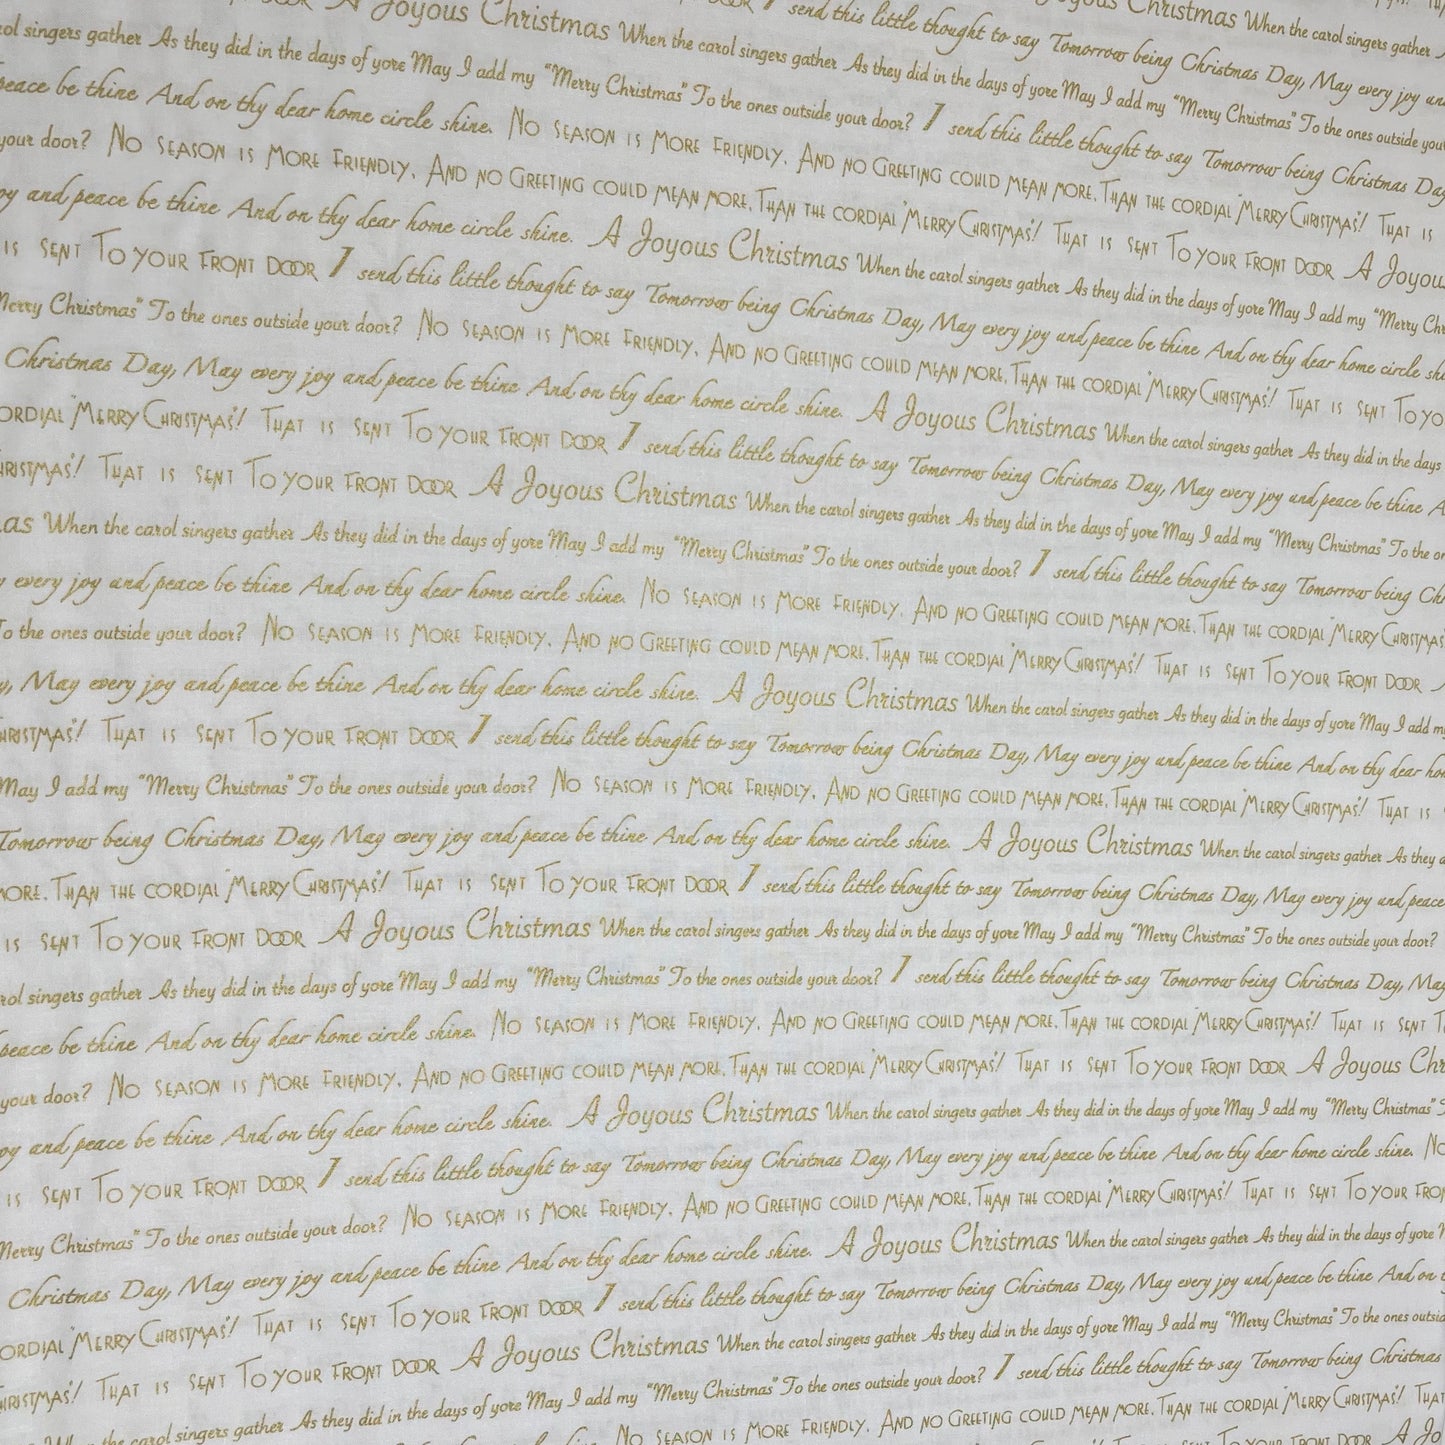 A Joyous Christmas When the carol singers gather
send this little thought to say Tomorrow being Christmas Day, May every joy
singers gather As they did in the days of yore May I add my "Merry Christmas" To the ones outside your door? I send this little thought to say Tomorrow being Christmas
peace be thine And on thy dear home circle shine. No season is more friendly, And no Greeting could mean more, Than the cordial "Merry Christmas"! That is
your door? No season is more friendly, And no Greeting could mean more, Than the cordial "Merry Christmas"! That is sent To your front door A
and peace be thine And on thy dear home circle shine. A Joyous Christmas When the carol singers gather As they did in the days of yore May I add my "Merry
is sent To your front door I send this little thought to say Tomorrow being Christmas Day, May every joy and peace be thine And on thy dear home circle
Merry Christmas" To the ones outside your door? No season is more friendly, And no Greeting could mean more, Than the cordial "Merry Christmas"! That is sent To
Christmas Day, May every joy and peace be thine And on thy dear home circle shine. A Joyous Christmas When the carol singers gather As they did in the days
"Merry Christmas"! That is sent To your front door I send this little thought to say Tomorrow being Christmas Day, May every joy and peace be thine
That is sent To your front door A Joyous Christmas When the carol singers gather As they did in the days of yore May I add my "Merry Christmas" To the
When the carol singers gather As they did in the days of yore May I add my "Merry Christmas" To the ones outside your door? I send this little thought to say Tomorrow being
every joy and peace be thine And on thy dear home circle shine. No season is more friendly, And no Greeting could mean more, Than the cordial "Merry Christmas
To the ones outside your door? No season is more friendly, And no Greeting could mean more, Than the cordial "Merry Christmas"! That is sent To your front door
May every joy and peace be thine And on thy dear home circle shine. A Joyous Christmas When the carol singers gather As they did in the days of yore May I add
That is sent To your front door I send this little thought to say Tomorrow being Christmas Day, May every joy and peace be thine And on thy dear
May I add my "Merry Christmas" To the ones outside your door? No season is more friendly, And no Greeting could mean more, Than the cordial "Merry Christmas"! That is
Tomorrow being Christmas Day, May every joy and peace be thine And on thy dear home circle shine. A Joyous Christmas When the carol singers gather As they
more, Than the cordial "Merry Christmas"! That is sent To your front door I send this little thought to say Tomorrow being Christmas Day, May every joy and peace
is sent To your front door A Joyous Christmas When the carol singers gather As they did in the days of yore May I add my "Merry Christmas" To the ones outside your door?
singers gather As they did in the days of yore May I add my "Merry Christmas" To the ones outside your door? I send this little thought to say Tomorrow being Christmas Day, May
peace be thine And on thy dear home circle shine. No season is more friendly, And no Greeting could mean more, Than the cordial "Merry Christmas"! That is sent
your door? No season is more friendly, And no Greeting could mean more, Than the cordial "Merry Christmas"! That is sent To your front door A Joyous
and peace be thine And on thy dear home circle shine. A Joyous Christmas When the carol singers gather As they did in the days of yore May I add my "Merry Christmas"
is sent To your front door I send this little thought to say Tomorrow being Christmas Day, May every joy and peace be thine And on thy dear home circle shine.
Merry Christmas" To the ones outside your door? No season is more friendly, And no Greeting could mean more, Than the cordial "Merry Christmas"! That is sent To your
Christmas Day, May every joy and peace be thine And on thy dear home circle shine. A Joyous Christmas When the carol singers gather As they did in the days of yore
"Merry Christmas"! That is sent To your front door I send this little thought to say Tomorrow being Christmas Day, May every joy and peace be thine And on
That is sent To your front door A Joyous Christmas When the carol singers gather As they did in the days of yore May I add my "Merry Christmas" To the ones
the carol singers gather As they did in the days of yore May I add my "Merry Christmas" To the ones outside your door? I send this little thought to say Tomorrow being Christmas
No season is more friendly, And no Greeting could mean more, Than the cordial "Merry Christmas"! That